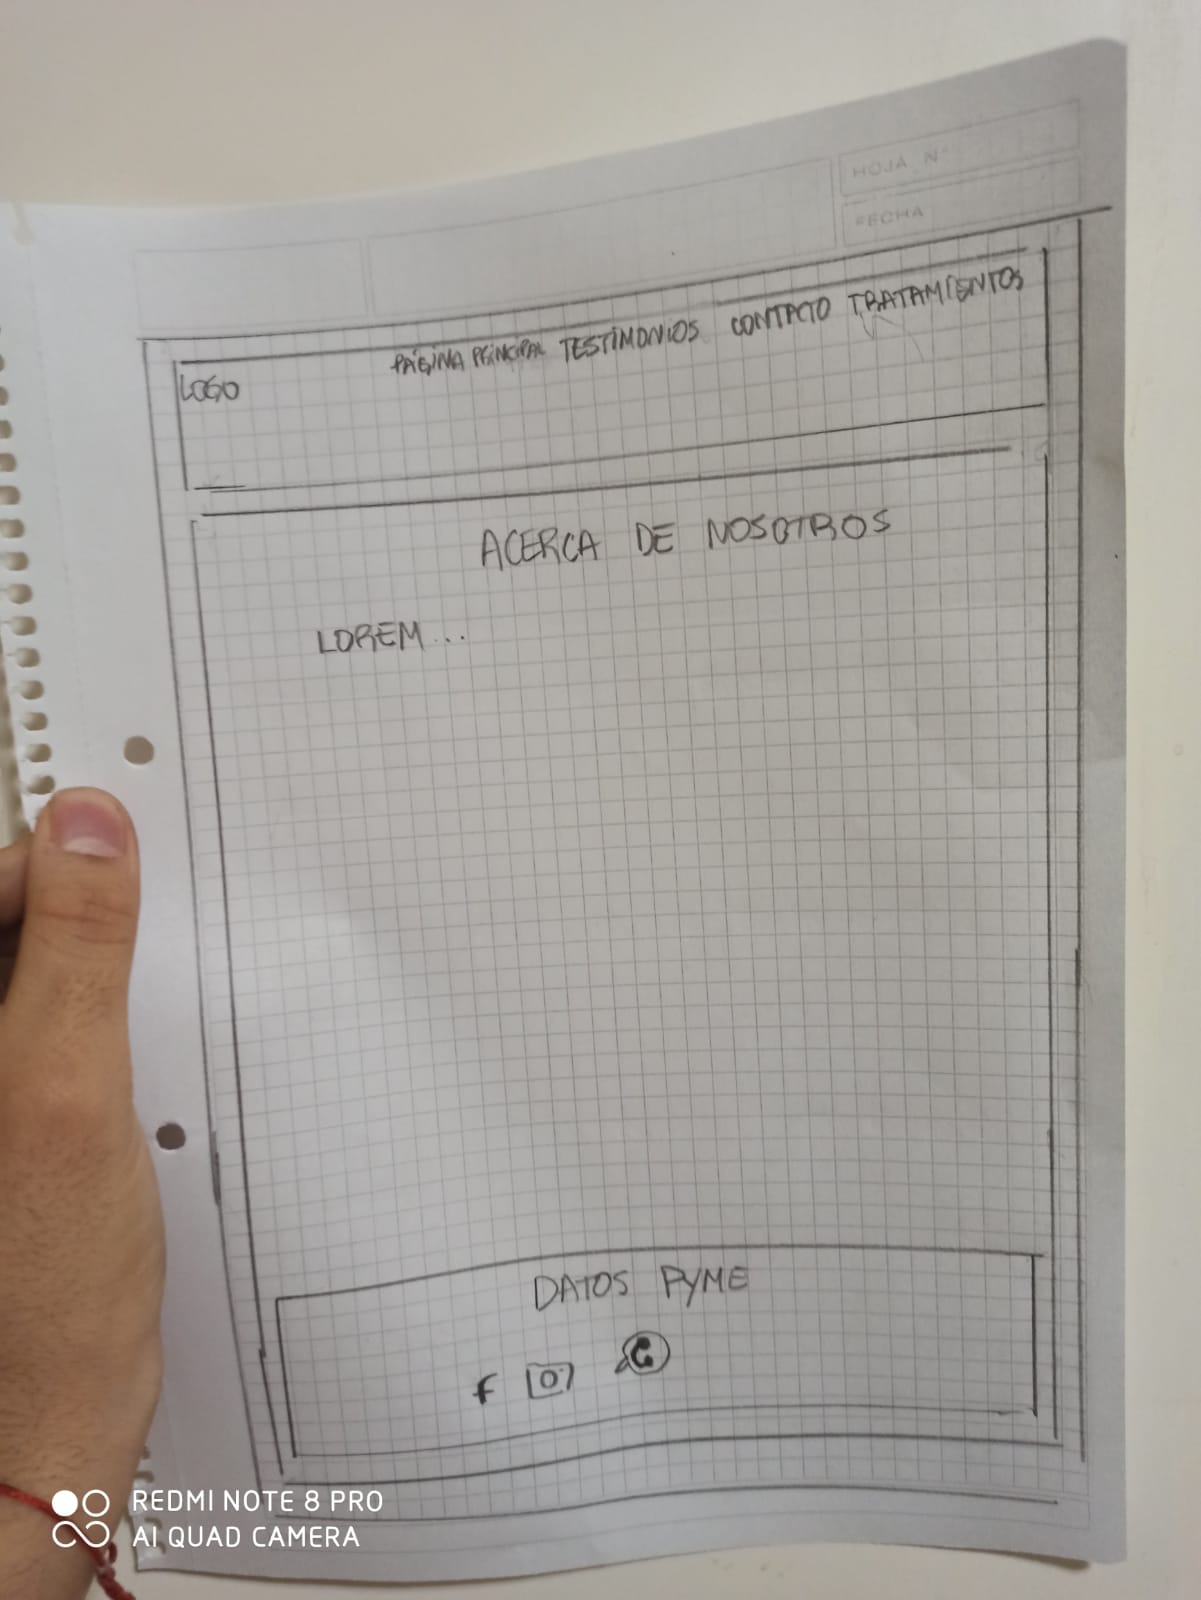 HOJA N°
FECHA
LOGO PÁGINA PRINCIPAL TESTIMONIOS CONTACTO TRATAMIENTOS
ACERCA DE NOSOTROS
LOREM...
DATOS PYME
f
REDMI NOTE 8 PRO
AI QUAD CAMERA